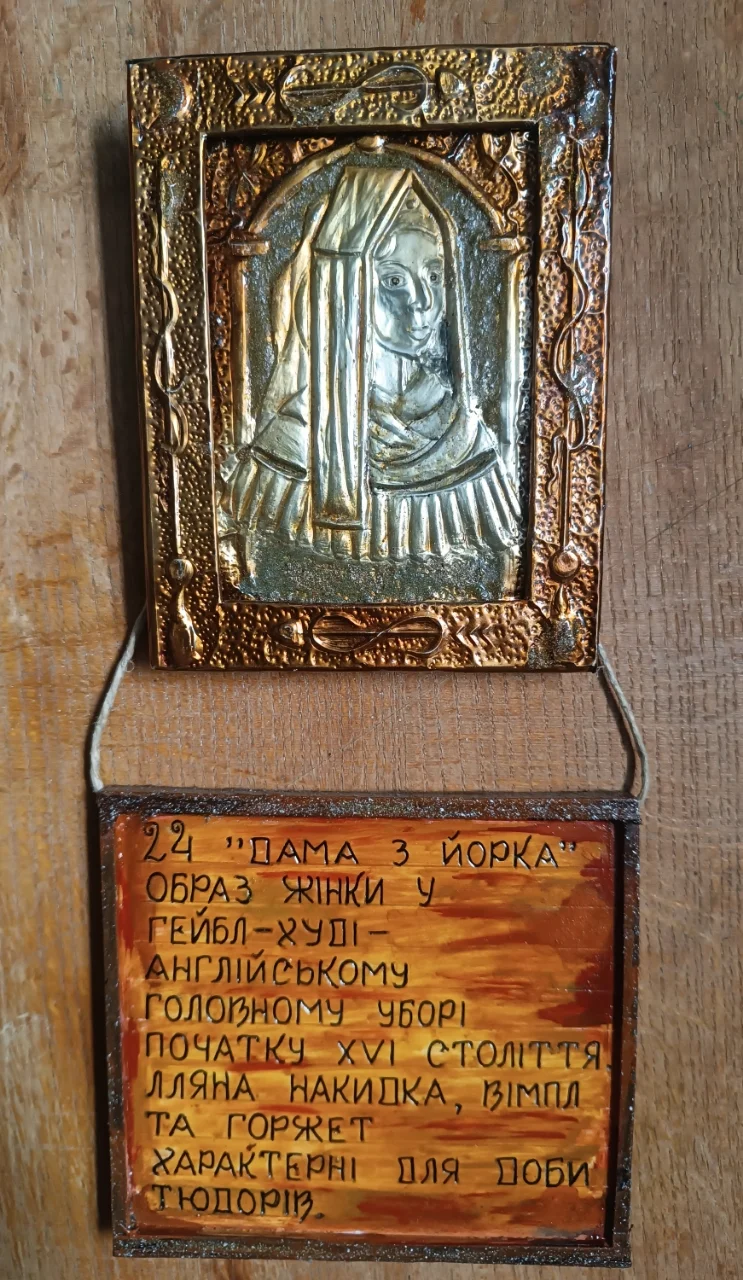 24 "ДАМА З ЙОРКА"
ОБРАЗ ЖІНКИ У
ГЕЙБЛ-ХУДІ-
АНГЛІЙСЬКОМУ
ГОЛОВНОМУ УБОРІ
ПОЧАТКУ XVI СТОЛІТТЯ.
ЛЛЯНА НАКИДКА, ВІМПЛ
ТА ГОРЖЕТ
ХАРАКТЕРНІ ДЛЯ ДОБИ
ТЮДОРІВ.